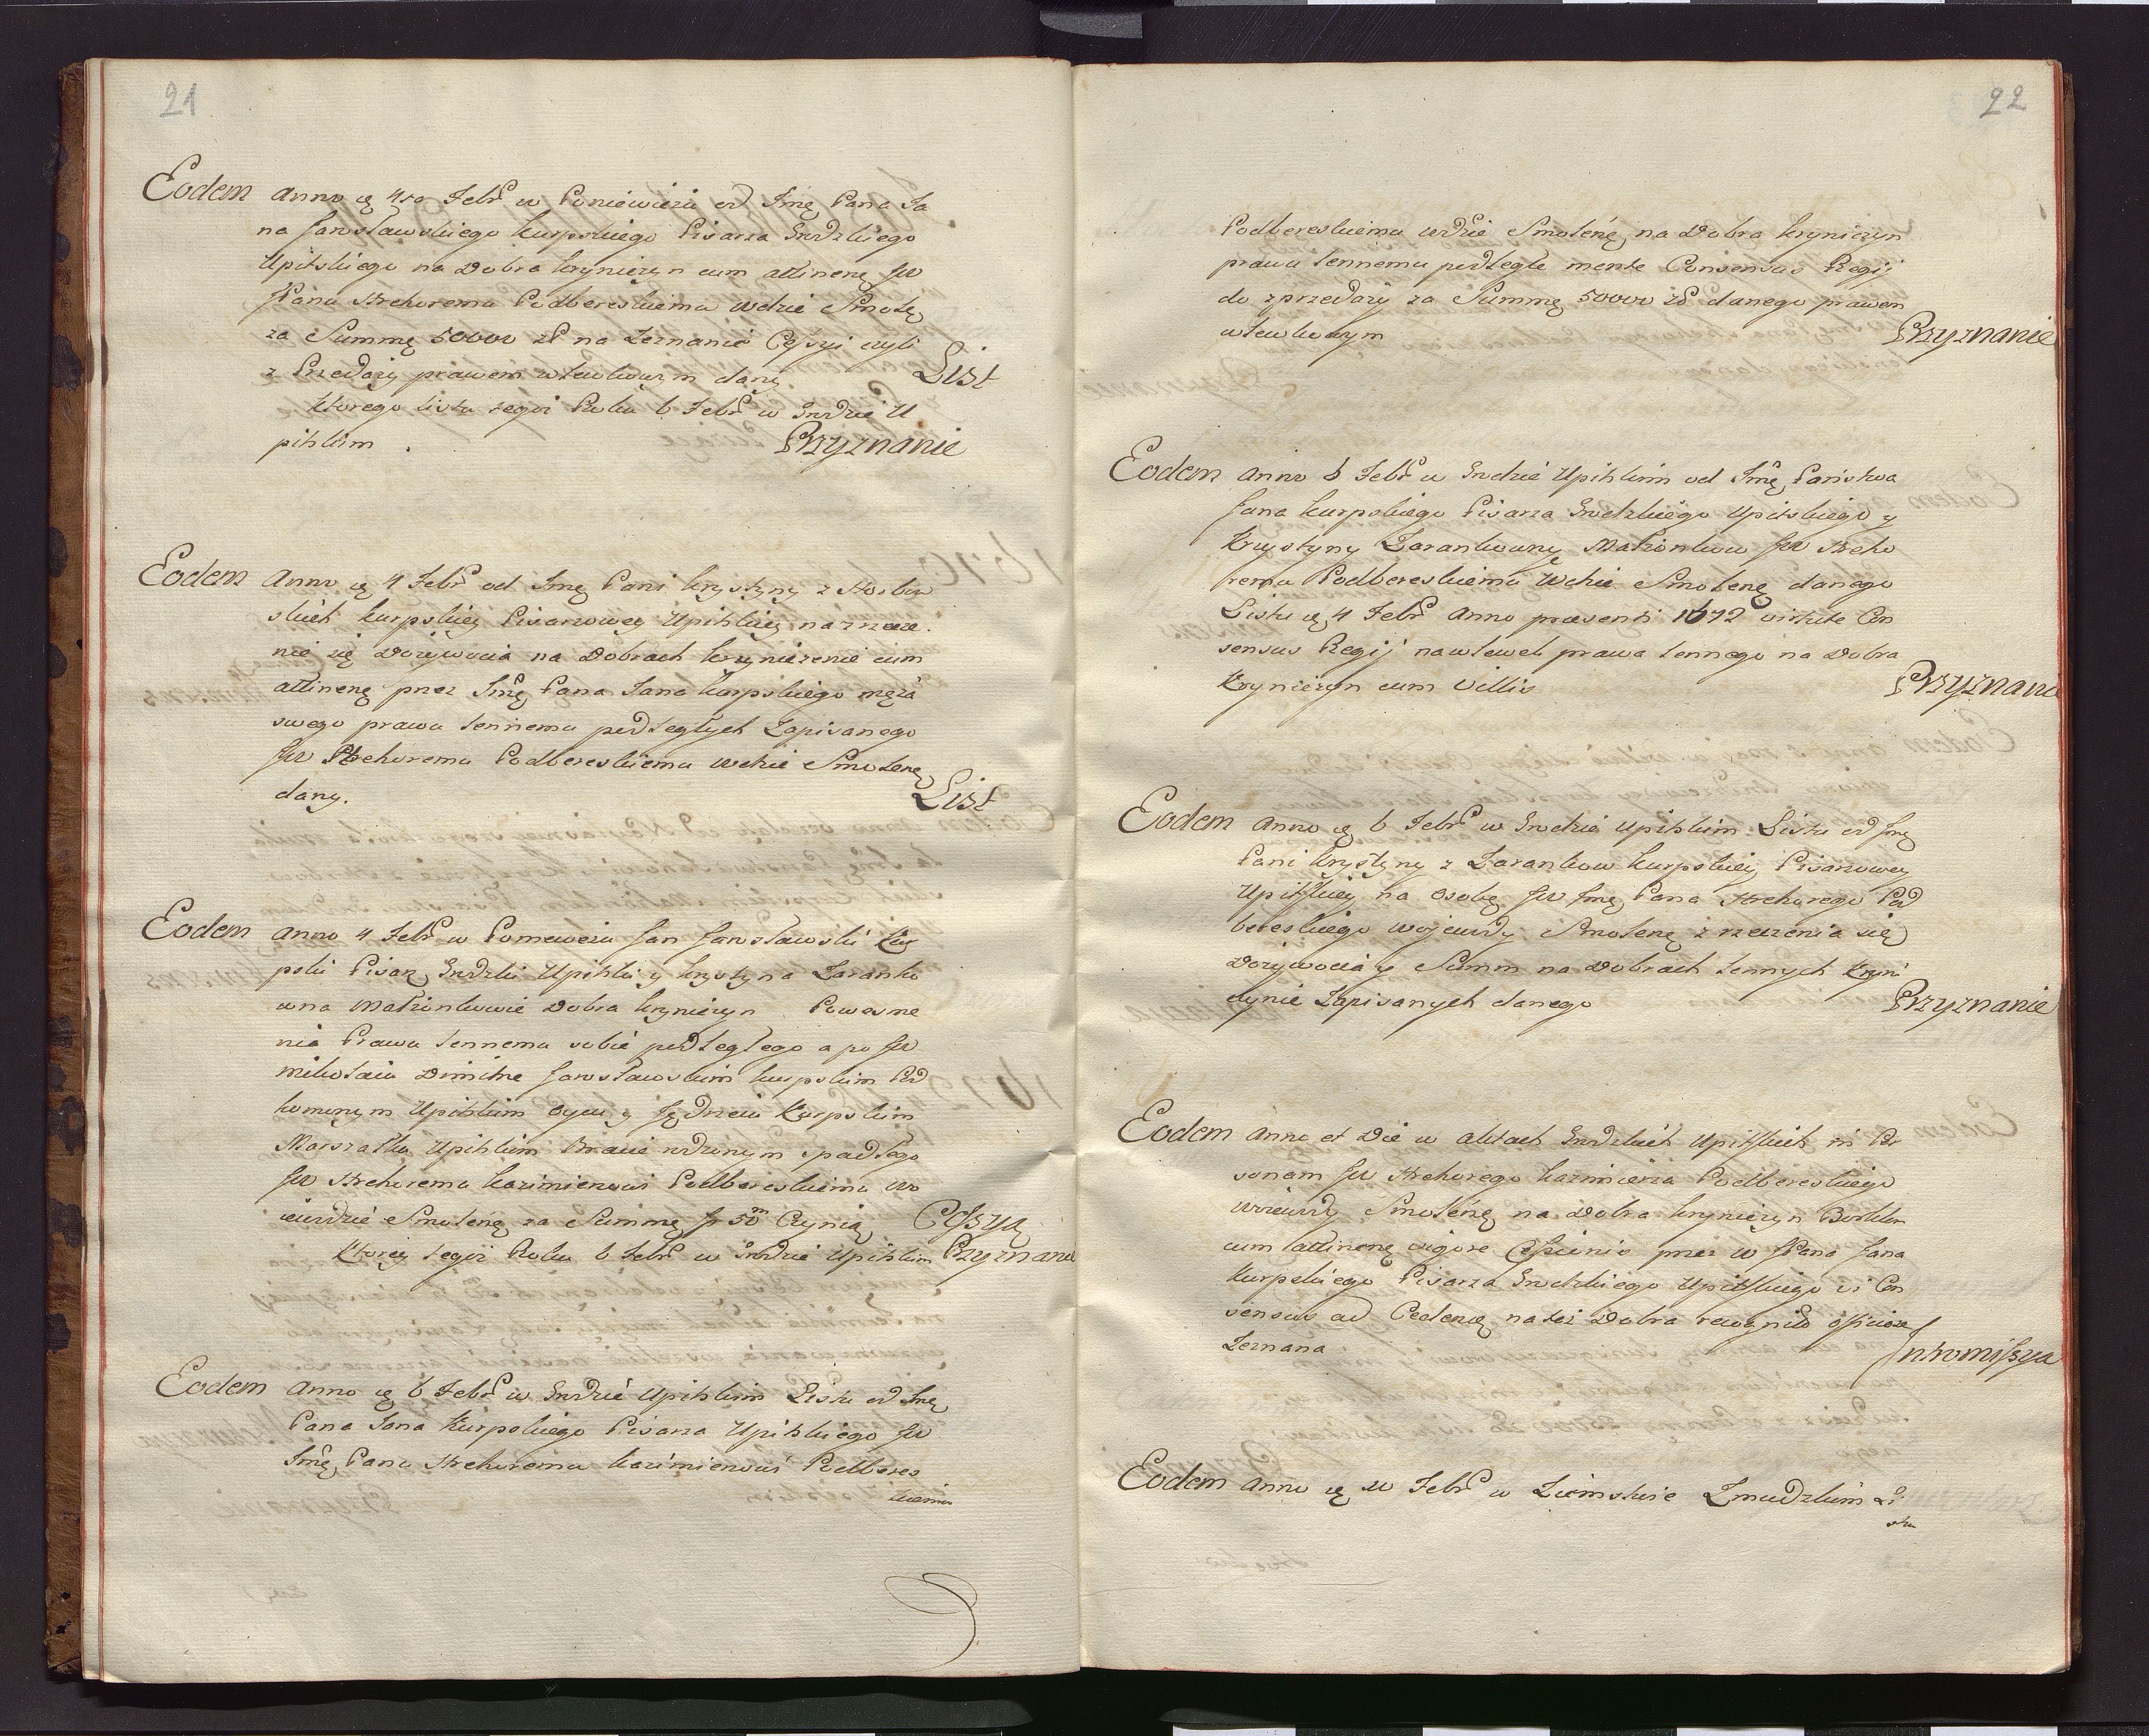 21
Eodem anno ię 4to Febr w Poniewieżu od Imę Pana Ja
na Jarosławskiego Kurpskiego Pisarza Grodzkiego
Upitskiego na Dobra Kryniczyn cum attinenę JW
JPanu Hrehoremu Podbereskiemu Wdzie Smoleń
za Summę 50000 zł na zeznanie Cessyi czyli
z Przedaży prawem wlewkowym dany List
Ktorego listu tegoż Roku 6 Febr w Grodzie U
pitskim. Przyznanie
Eodem Anno ię 4 Febr od Imę Pani Krystyny z
skich Kurpskiey Pisarzowey Upitskiey na zrzecze
nie się Dożywocia na Dobrach Kryniczynie cum
attinenę przez Imę Pana Jana Kurpskiego męża
swego prawu lennemu podległych Zapisanego
JW Hrehoremu Podbereskiemu Wdzie Smolenę
dany. List
Eodem Anno 4 Febr w Poniewieżu Jan Jarosławski Kur
pski Pisarz Grodzki Upitski y Krystyna Zaranko
wna Małżonkowie Dobra Kryniczyn
nia Prawu lennemu sobie podległego a po JW
Mikołaiu Dimitrze Jarosławskim Kurpskim Pod
komorzym Upitskim Oycu y Jędrzeiu Kurpskim
Marszałku Upitskim Bracie rodzonym spadłego
JW Hrehoremu Kazimierzowi Podbereskiemu Wo
iewodzie Smolenę za Summę fr 50m Czynią Cessyą
Ktorey tegoż Roku 6 Febr w Grodzie Upitskim Przyznanie
Eodem Anno ię 6 Febr w Grodzie Upitskim Listu od Imę
Pana Jana Kurpskiego Pisarza Upitskiego JW
Imę Panu Hrehoremu Kazimierzowi Podberes
kiemu
22
Podbereskiemu Wdzie Smolenę na Dobra Kryniczyn
prawu lennemu podległe mente Consensus Regij
do zprzedaży za Summę 50000 zł danego prawem
wlewkowym Przyznanie
Eodem Anno 6 Febr w Grodzie Upitskim od Imę Państwa
Jana Kurpskiego Pisarza Grodzkiego Upitskiego y
Krystyny Zarankowny Małżonkow JW Hreho
remu Podbereskiemu Wdzie Smolenę danego
Listu ię 4 Febr Anno praesenti 1672 virtute Con
sensus Regij na wlewek prawa lennego na Dobra
Kryniczyn cum Villis Przyznanie
Eodem Anno ię 6 Febr w Grodzie Upitskim Listu od Imę
Pani Krystyny z Zarankow Kurpskiey Pisarzowey
Upitskiey na osobę JW Imę Pana Hrehorego Pod
bereskiego Wojewody Smolenę zrzeczenia się
Dożywocia y Summ na Dobrach lennych Kryni
czynie Zapisanych danego Przyznanie
Eodem Anno et Die w Aktach Grodzkich Upitskich in Per
sonam JW Hrehorego Kazimierza Podbereskiego
Woiewody Smolenę na Dobra Kryniczyn
cum attinenę vigore Cessionis przez W JPana Jana
Kurpskiego Pisarza Grodzkiego Upitskiego vi Con
sensus ad Cedendę na też Dobra
Zeznana Intromissya
Eodem Anno ię 20 Febr w Ziemstwie Zmudzkim Li
stu